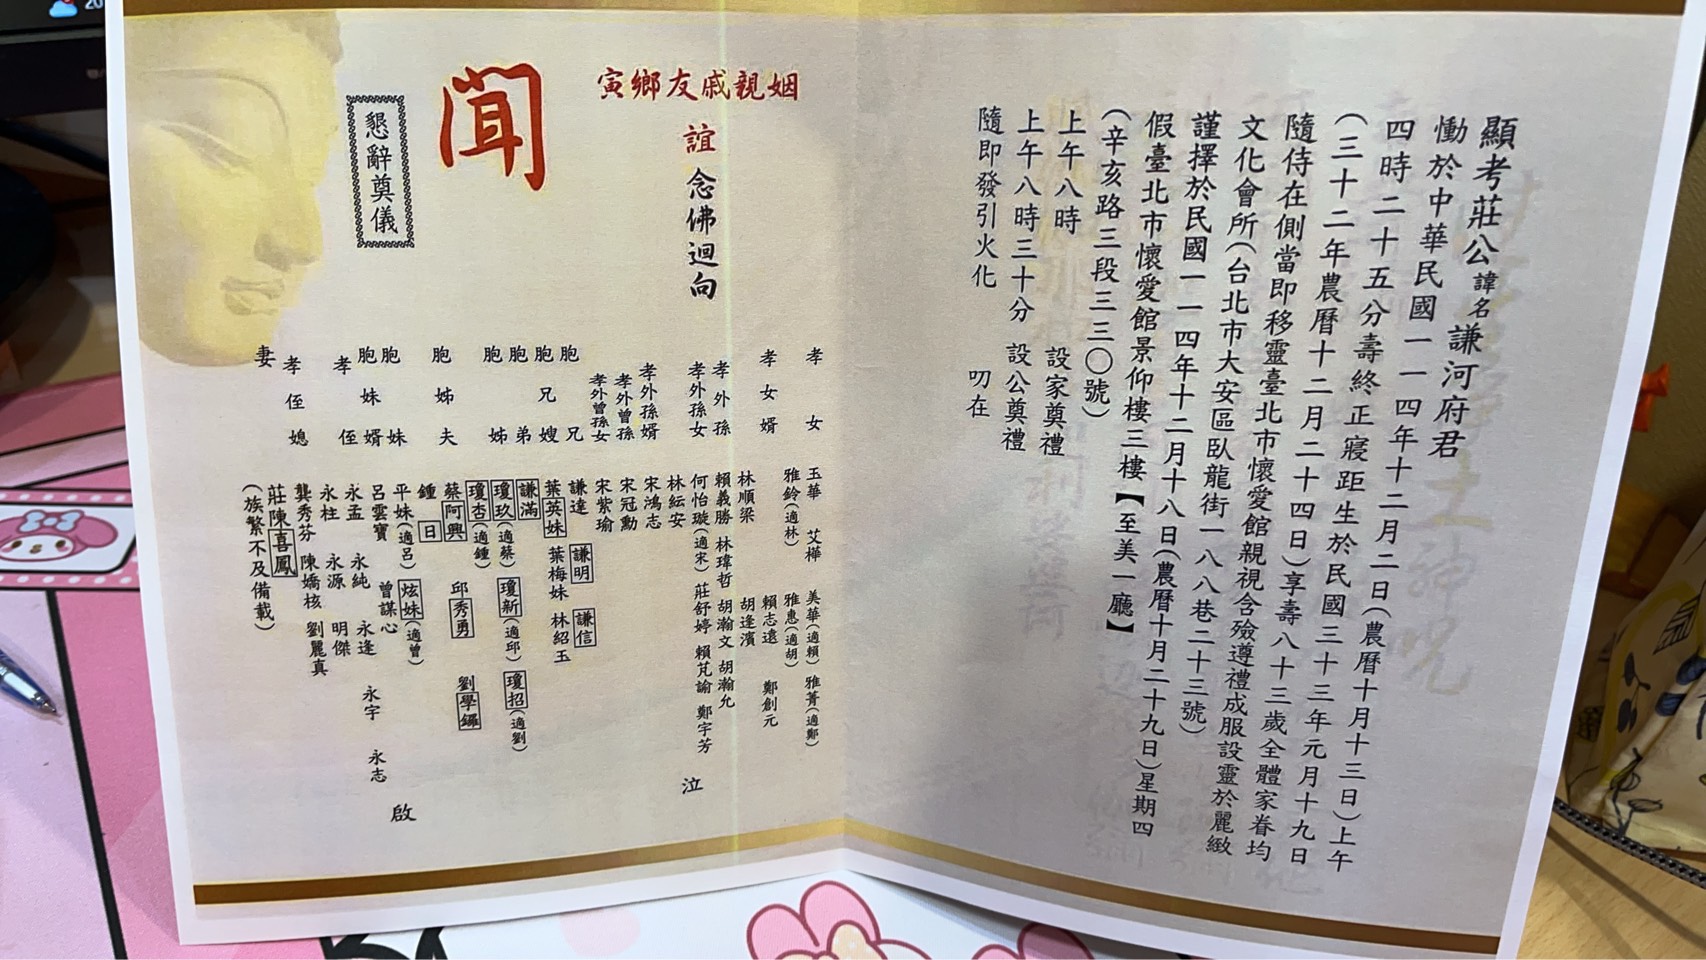 顯考莊公諱名謙河府君
慟於中華民國一一四年十二月二日(農曆十月十三日)上午
四時二十五分壽終正寢距生於民國三十三年元月十九日
(三十二年農曆十二月二十四日)享壽八十三歲全體家眷均
隨侍在側當即移靈臺北市懷愛館親視含殮遵禮成服設靈於麗緻
文化會所(台北市大安區臥龍街一八八巷二十三號)
謹擇於民國一一四年十二月十八日(農曆十月二十九日)星期四
假臺北市懷愛館景仰樓三樓【至美一廳】
(辛亥路三段三三〇號)
上午八時 設家奠禮
上午八時三十分 設公奠禮
隨即發引火化 叨在
姻親戚友鄉寅
誼念佛迴向
聞
懇辭奠儀
孝女 玉華 艾樺 美華(適賴) 雅菁(適鄭)
雅鈴(適林) 雅惠(適胡)
孝女婿 賴志遠 鄭創元
林順梁 胡逢濱
孝外孫 賴義勝 林瑋哲 胡瀚文 胡瀚允
孝外孫女 何怡璇(適宋) 莊舒婷 賴芃諭 鄭宇芳
林紜安
孝外孫婿 宋鴻志
孝外曾孫 宋冠勳
孝外曾孫女 宋紫瑜
胞兄 謙達 謙明 謙信
胞兄嫂 葉英妹 葉梅妹 林紹玉
胞弟 謙滿
胞姊 瓊玖(適蔡) 瓊新(適邱) 瓊招(適劉)
瓊杏(適鍾)
胞姊夫 蔡阿興 邱秀勇 劉學鑼
鍾日
胞妹 平妹(適呂) 炫妹(適曾)
胞妹婿 呂雲寶 曾謀心
孝侄 永孟 永純 永逢 永宇 永志
永柱 永源 明傑
孝侄媳 龔秀芬 陳嬌核 劉麗真
妻 莊陳喜鳳
(族繁不及備載)
泣
啟